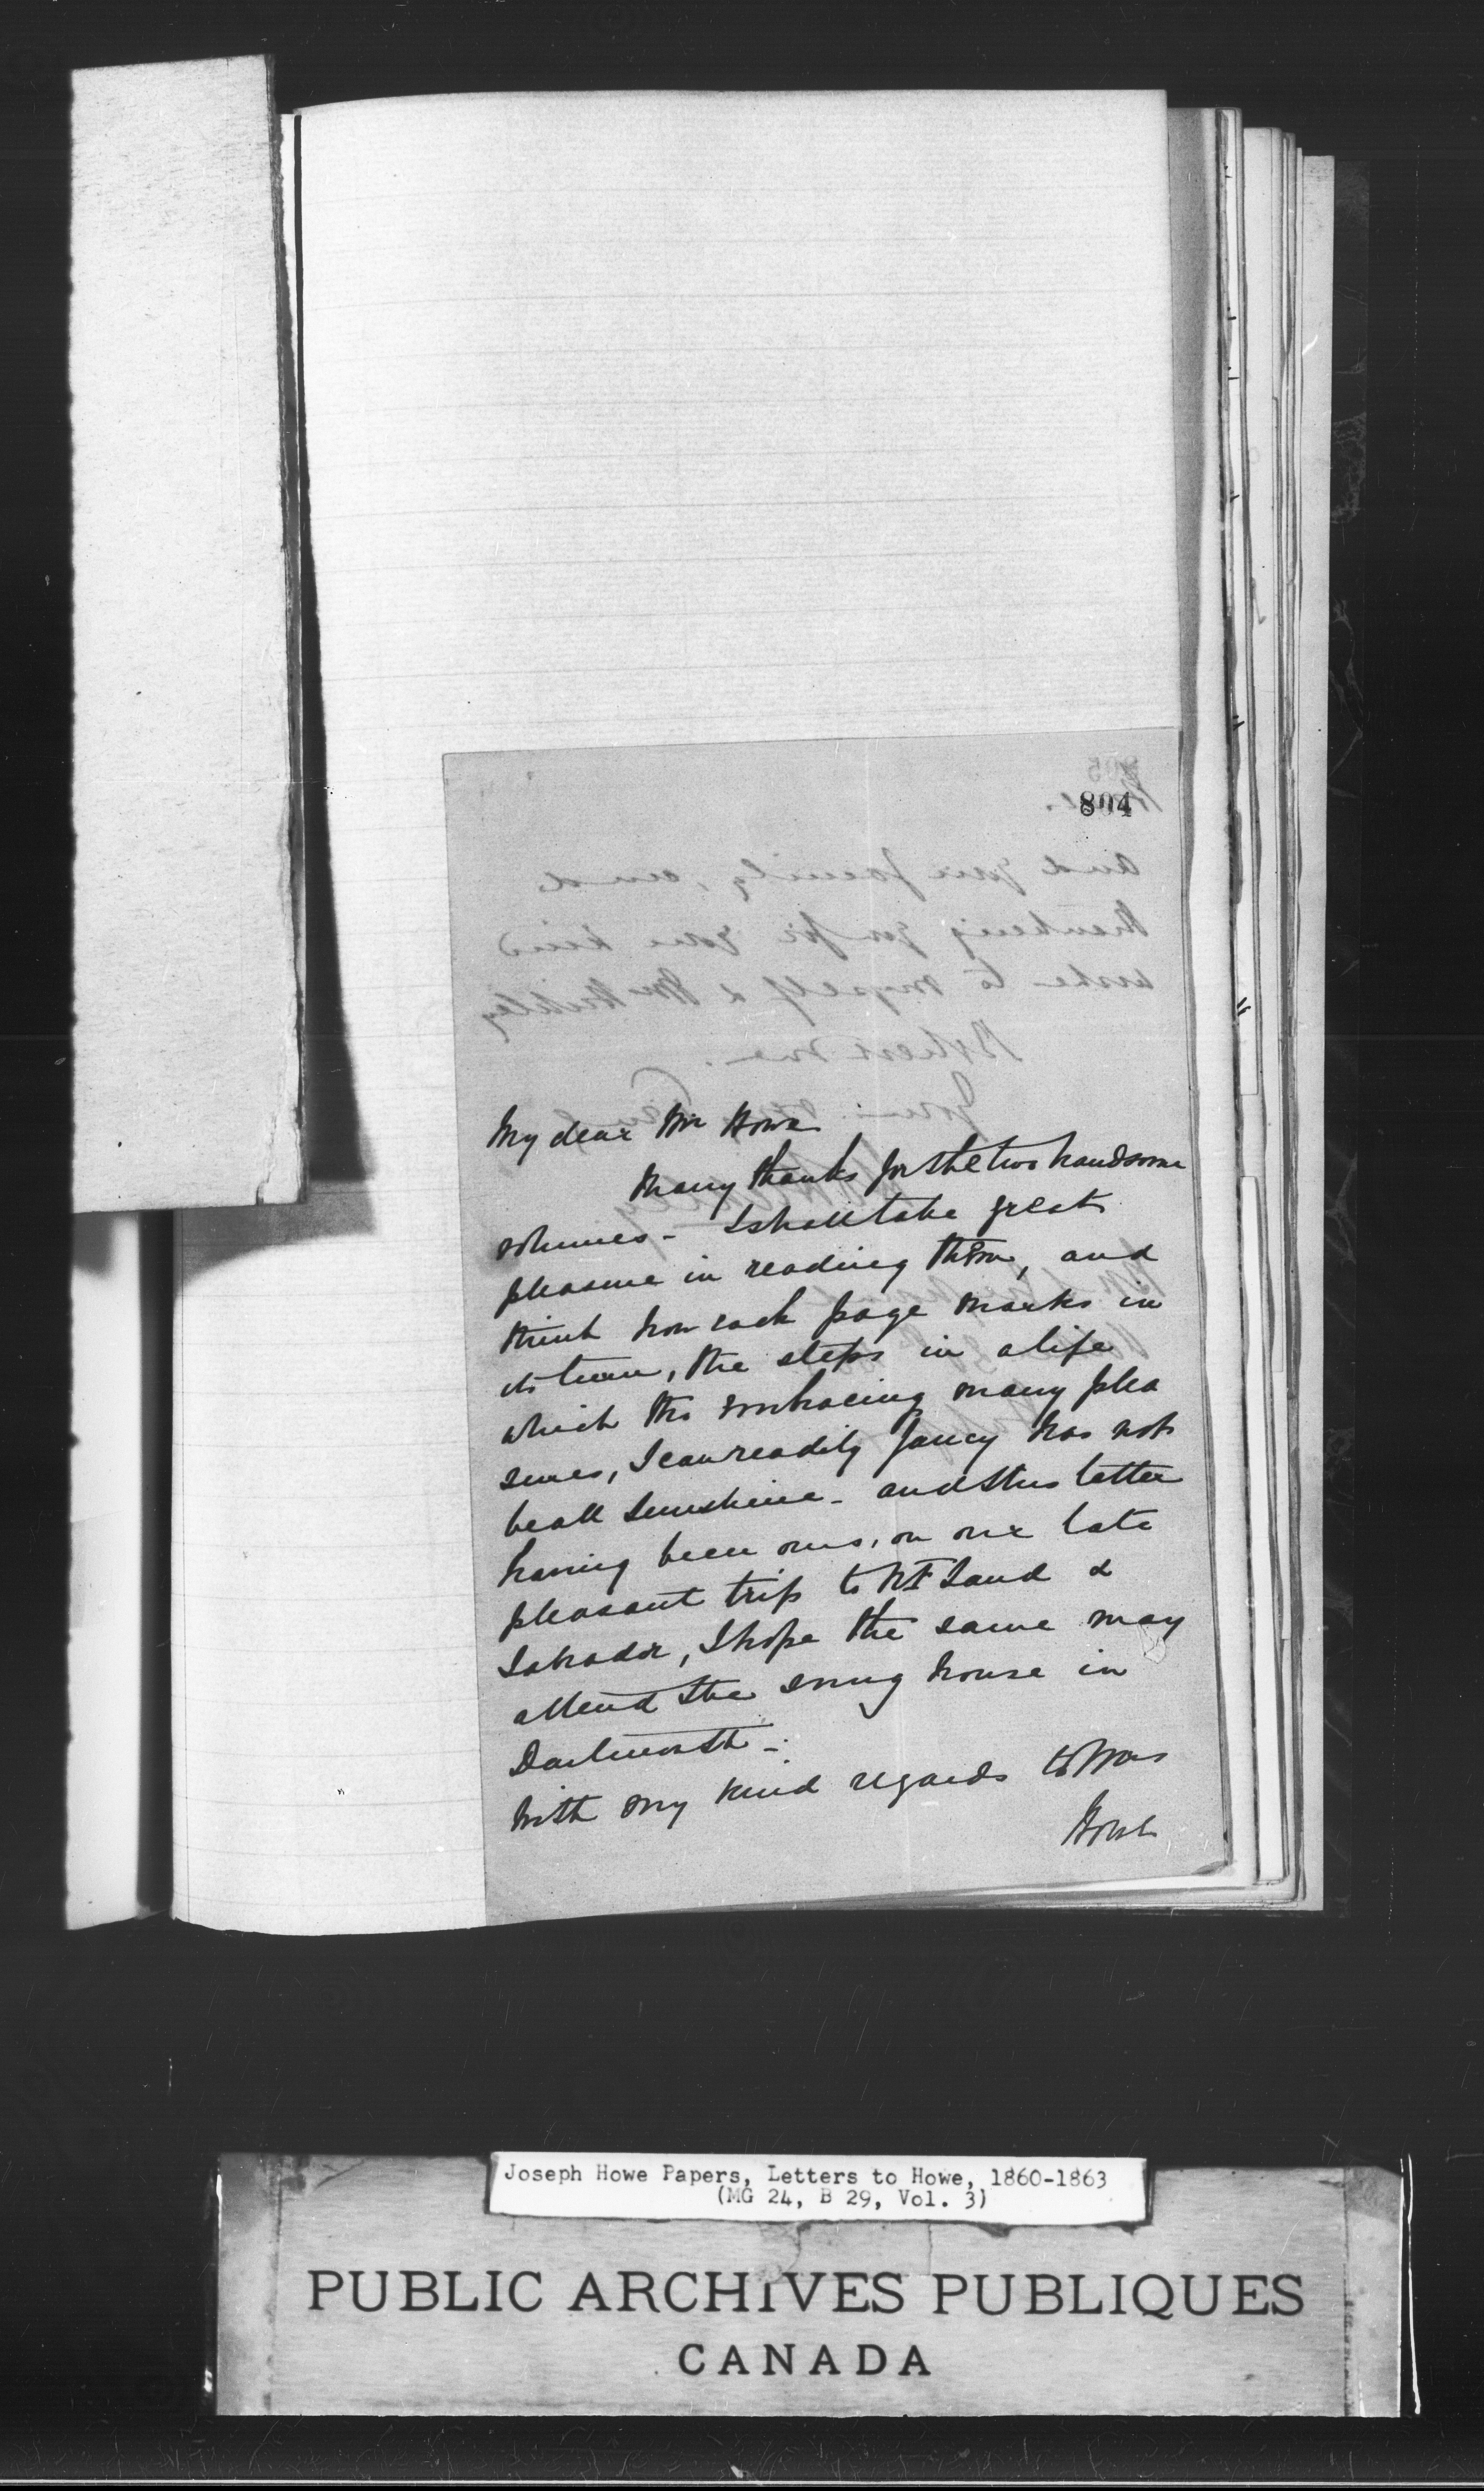 804
My dear Mr Howe
Many thanks for the two handsome
volumes - I shall take great
pleasure in reading them, and
think how each page marks in
its turn, the steps in a life
which tho embracing many plea
sures, I can readily fancy has not
be all sunshine - and this latter
having been ours, on our late
pleasant trip to NFLand &
Labrador, I hope the same may
attend the snug house in
Dartmouth -
With my kind regards to Mrs
Howe
Joseph Howe Papers, Letters to Howe, 1860-1863
(MG 24, B 29, Vol. 3)
PUBLIC ARCHIVES PUBLIQUES
CANADA